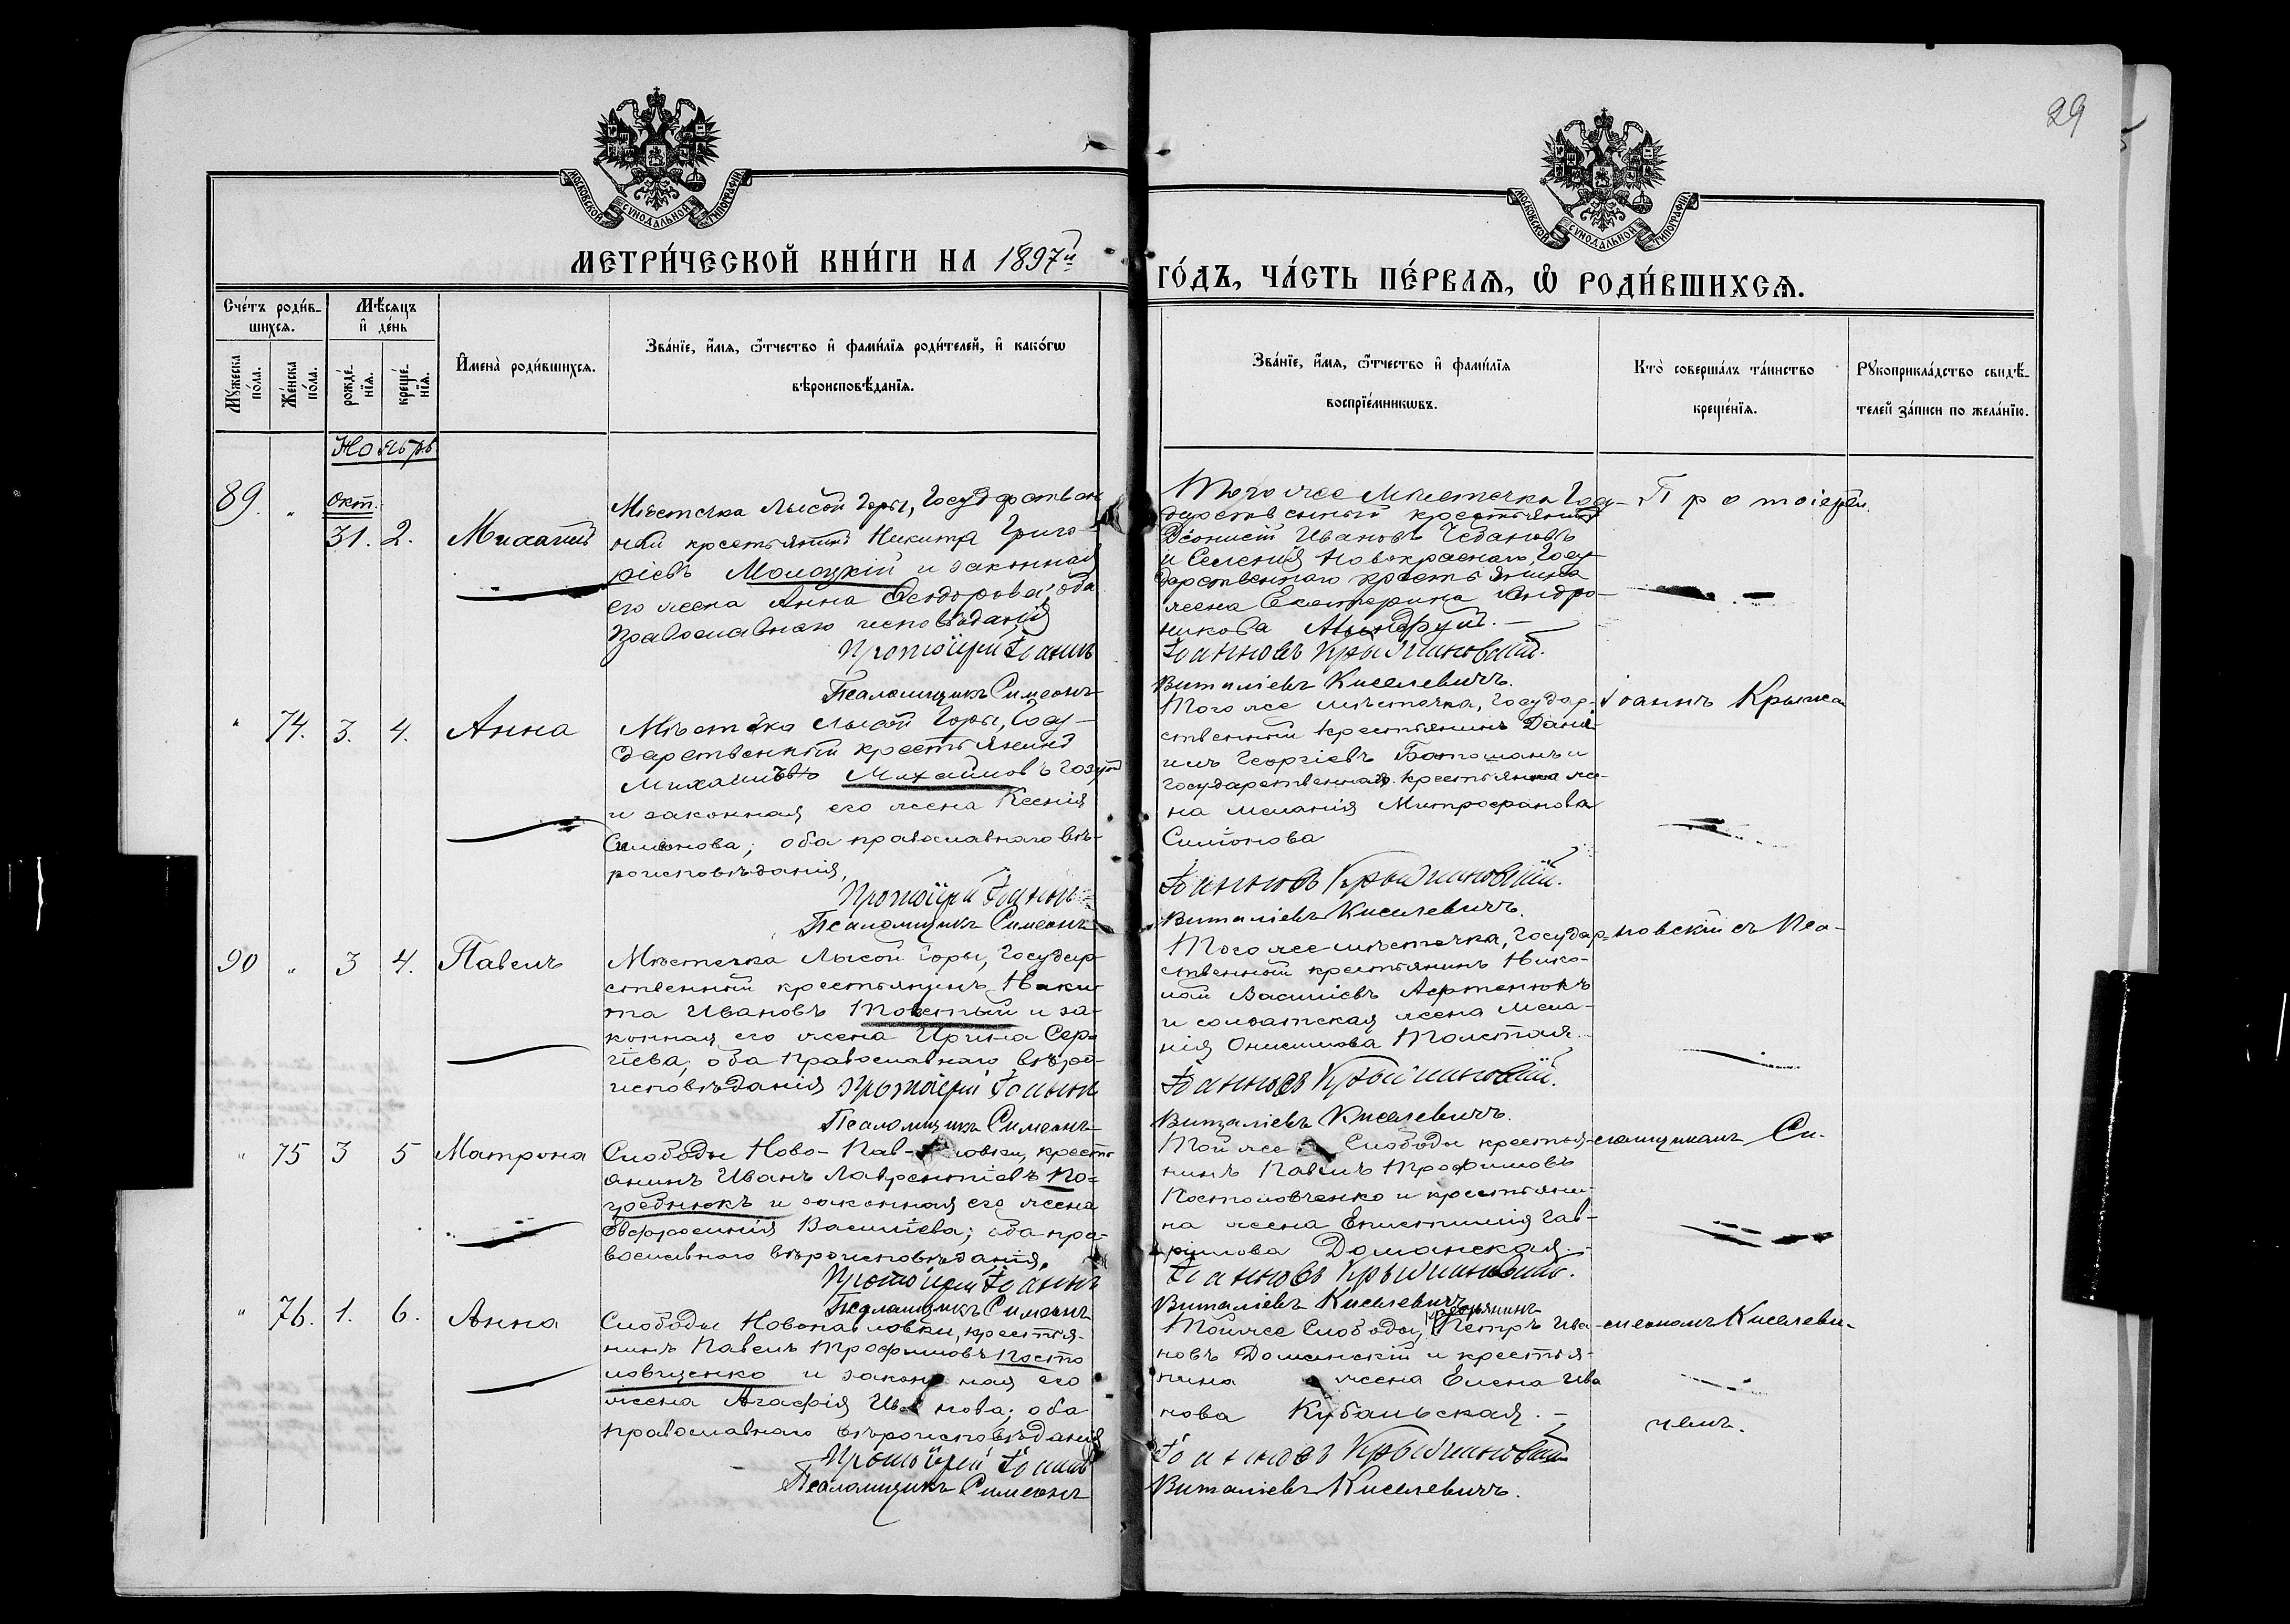 29
МОСКОВСКОЙ СУНОДАЛЬНОЙ ТИПОГРАФІИ
МОСКОВСКОЙ СУНОДАЛЬНОЙ ТИПОГРАФІИ
МЕТРИ́ЧЕСКОЙ КНИ́ГИ НА 1897й
ГО́ДЪ, ЧА́СТЬ ПЕ́РВАѦ, Ѡ РОДИ́ВШИХСѦ.
Сче́тъ роди́в-
шихсѧ.
Мѣ́сяцъ
и҆ де́нь
Мꙋ́жеска
по́ла.
Же́нска
по́ла.
рожде́-
нїѧ.
креще́-
нїѧ.
И҆мена̀ роди́вшихсѧ.
Зва́нїе, и҆́мѧ, ѻ҆́тчество и҆ фами́лїѧ роди́телей, и҆ како́гѡ
вѣроисповѣ́данїѧ.
Зва́нїе, и҆́мѧ, ѻ҆́тчество и҆ фами́лїѧ
воспрїе́мникѡвъ.
Кто̀ соверша́лъ та́инство
креще́нїѧ.
Рꙋкоприкла́дство свидѣ́-
телей за́писи по жела́нїю.
Ноябрь
89. " Окт.
31. 2. Михаилъ
Мѣстечка Лысой Горы, Государствен
ный крестьянинъ Никита Григо-
ріевъ Молоцкій и законная
его жена Анна Ѳеодорова; оба
православнаго исповѣданія
Протоіерей Іоаннъ
Псаломщикъ Симеонъ
Того же Мѣстечка Госу-
дарственный крестьянинъ
Діонисій Ивановъ Чебановъ
и Селенія Новокраснаго, Госу-
дарственнаго крестьянина
жена Екатерина Андро-
никова
Іоанновъ Крыжановскій.
Виталіевъ Киселевичъ.
Протоіерей
" 74. 3. 4. Анна
Мѣстечка Лысой Горы, Госу-
дарственный крестьянинъ
Михаилъ Михайловъ
и законная его жена Ксенія
Симонова; оба православнаго вѣ-
роисповѣданія,
Протоіерей Іоаннъ
Псаломщикъ Симеонъ
Того же мѣстечка, Государ-
ственный крестьянинъ Дані-
илъ Георгіевъ Ботошанъ и
Государственнаго крестьянина же-
на Меланія Митрофанова
Симонова
Іоанновъ Крыжановскій.
Виталіевъ Киселевичъ.
Іоаннъ Крыжа
90 " 3 4. Павелъ
Мѣстечка Лысой Горы, Государ-
ственный крестьянинъ Ники-
та Ивановъ Товстый и за-
конная его жена Ирина Сер-
гіева, оба православнаго вѣро-
исповѣданія Протоіерей Іоаннъ
Псаломщикъ Симеонъ
Того же мѣстечка, Государ-
ственный крестьянинъ Нико-
лай Василіевъ
и солдатская жена Мела-
нія Онисимова Толстая.
Іоанновъ Крыжановскій.
Виталіевъ Киселевичъ.
новскій съ Пса-
" 75 3 5 Матрона
Слободы Ново-Пав-ловки, кресть
анинъ Иванъ Лаврентіевъ По-
гребнюкъ и законная его жена
Евфросинія Василіева; оба пра-
вославнаго вѣроисповѣданія.
Протоіерей Іоаннъ
Псаломщикъ Симеонъ
Той же Слободы крестья-
нинъ Павелъ Трофимовъ
Постоловченко и крестьяни-
на жена Епистимія Гав-
рилова Доманская.
Іоанновъ Крыжановскій.
Виталіевъ Киселевичъ
ломщикомъ Си-
" 76. 1. 6. Анна
Слободы Новопавловки, крестья-
нинъ Павелъ Трофимовъ Посто
ловченко и законная его
жена Агафія Иванова; оба
православнаго вѣроисповѣданія
Протоіерей Іоаннъ
Псаломщикъ Симеонъ
крестьянинъ
Той же Слободы, Петръ Ива-
новъ Доманскій и крестья-
нина жена Елена Ива
нова Кубальская. -
Іоанновъ Крыжановскій
Виталіевъ Киселевичъ.
меономъ Киселеви-
чемъ.